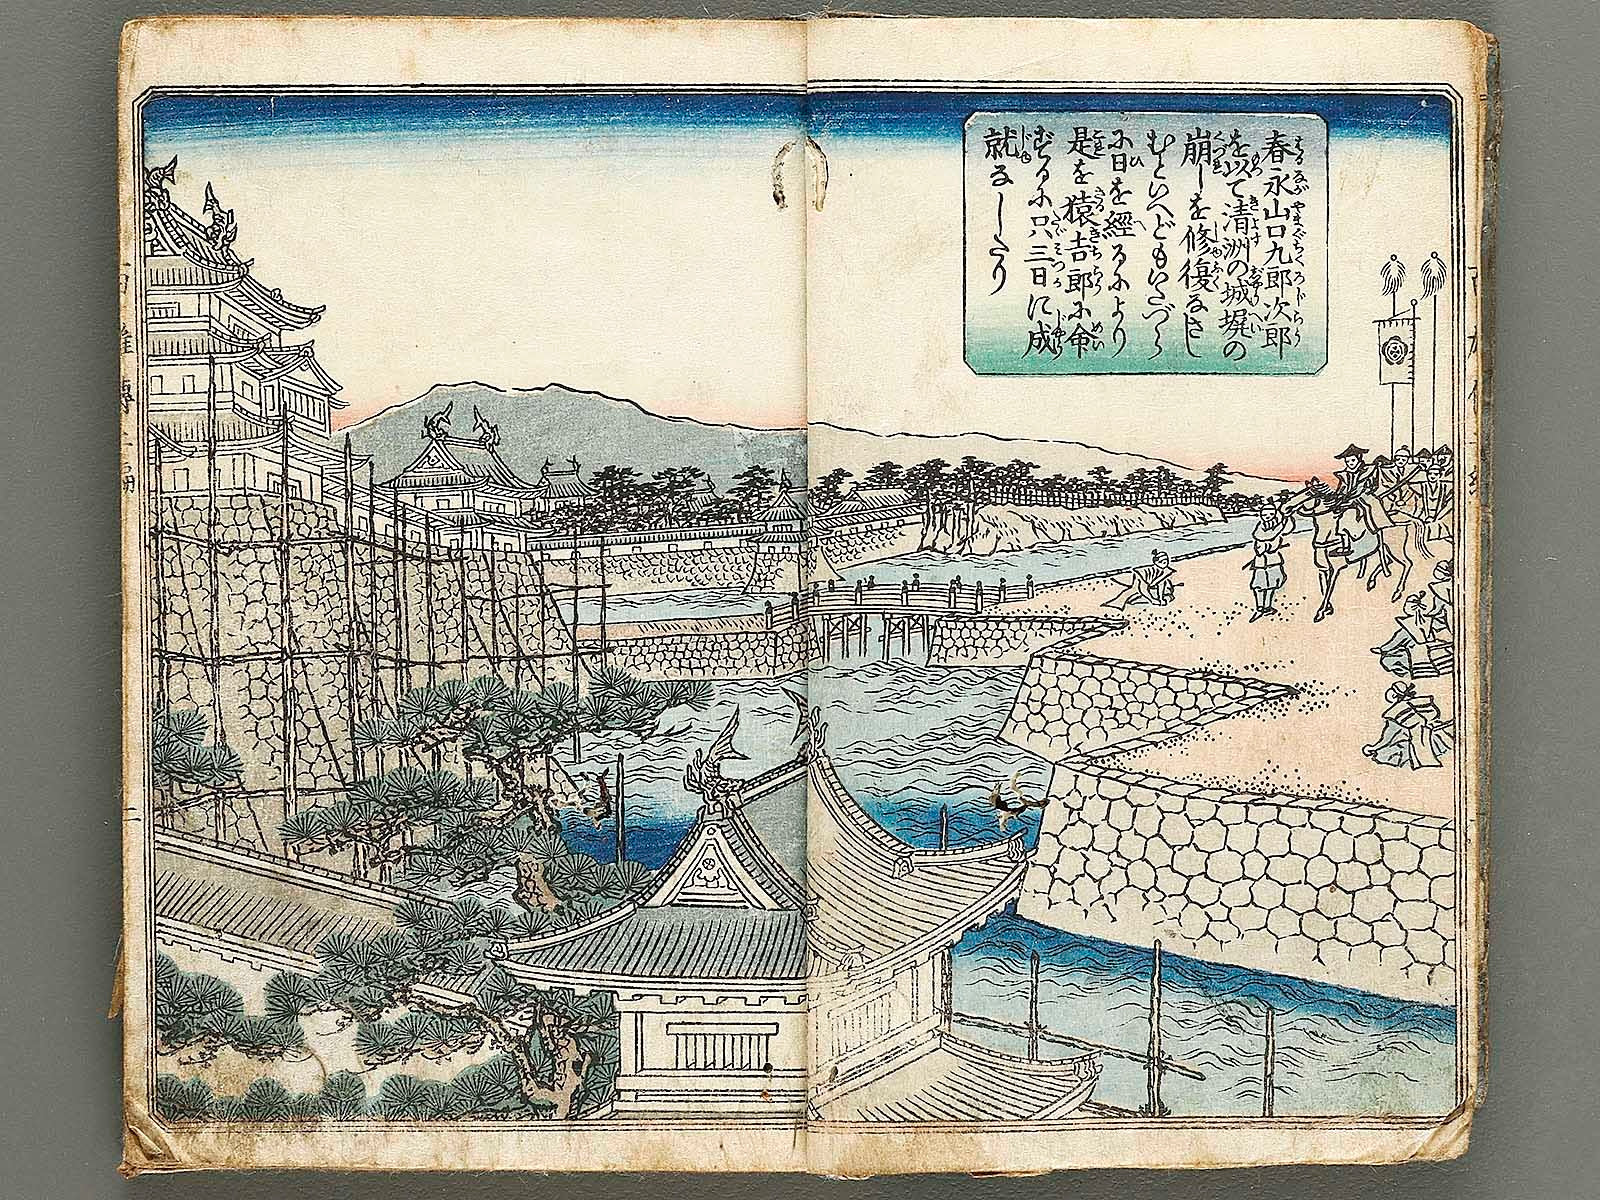 春永山口九郎次郎
を以て清洲の城塀の
崩しを修復なさし
むといへどもいたづら
に日を經るにより
是を猿吉郎に命
ずるに只三日に成
就なしたり